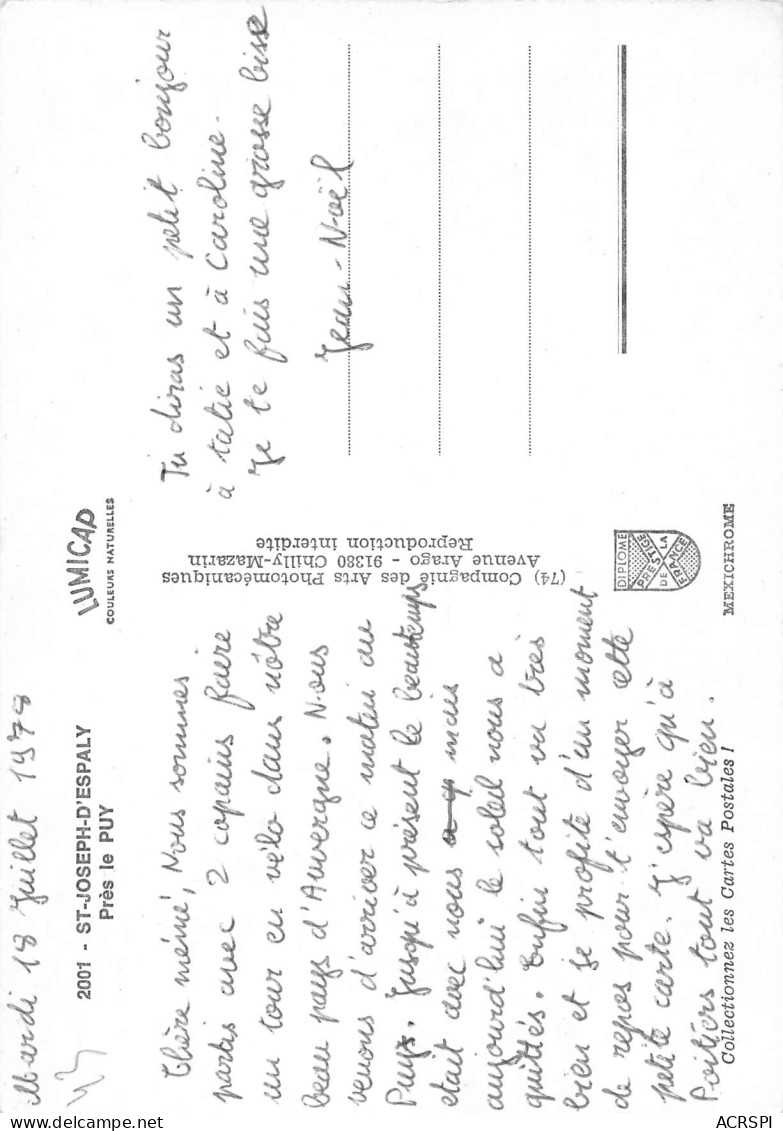 Mardi 18 Juillet 1978
2001 - ST-JOSEPH-D'ESPALY
Près le PUY
LUMICAP
COULEURS NATURELLES
Chère mémé, Nous sommes
partis avec 2 copains faire
un tour en vélo dans nôtre
beau pays d'Auvergne. Nous
venons d'arriver ce matin au
Puy. Jusqu'à présent le beau temps
était avec nous mais
aujourd'hui le soleil nous a
quittés. Enfin tout va très
bien et je profite d'un moment
de repos pour t'envoyer cette
petite carte. J'espère qu'à
Poitiers tout va bien.
Tu diras un petit bonjour
à tatie et à Caroline.
Je te fais une grosse bise
Jean-Noël
(74) Compagnie des Arts Photomécaniques
Avenue Arago - 91380 Chilly-Mazarin
Reproduction interdite
DIPLOME
PRESTIGE
DE LA
FRANCE
Collectionnez les Cartes Postales !
MEXICHROME
ACRSPI